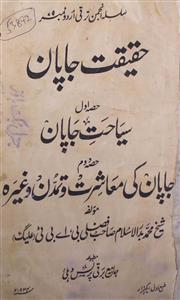 سلسلہ انجمن ترقی اردو نمبر ۷۵
حقیقت جاپان
حصہ اول
سیاحت جاپان
حصہ دوم
جاپان کی معاشرت و تمدن وغیرہ
مؤلفہ
شیخ محمد بدر الاسلام صاحب فضلی بی اے، بی ٹی (علیگ)
جامع برقی پریس دہلی